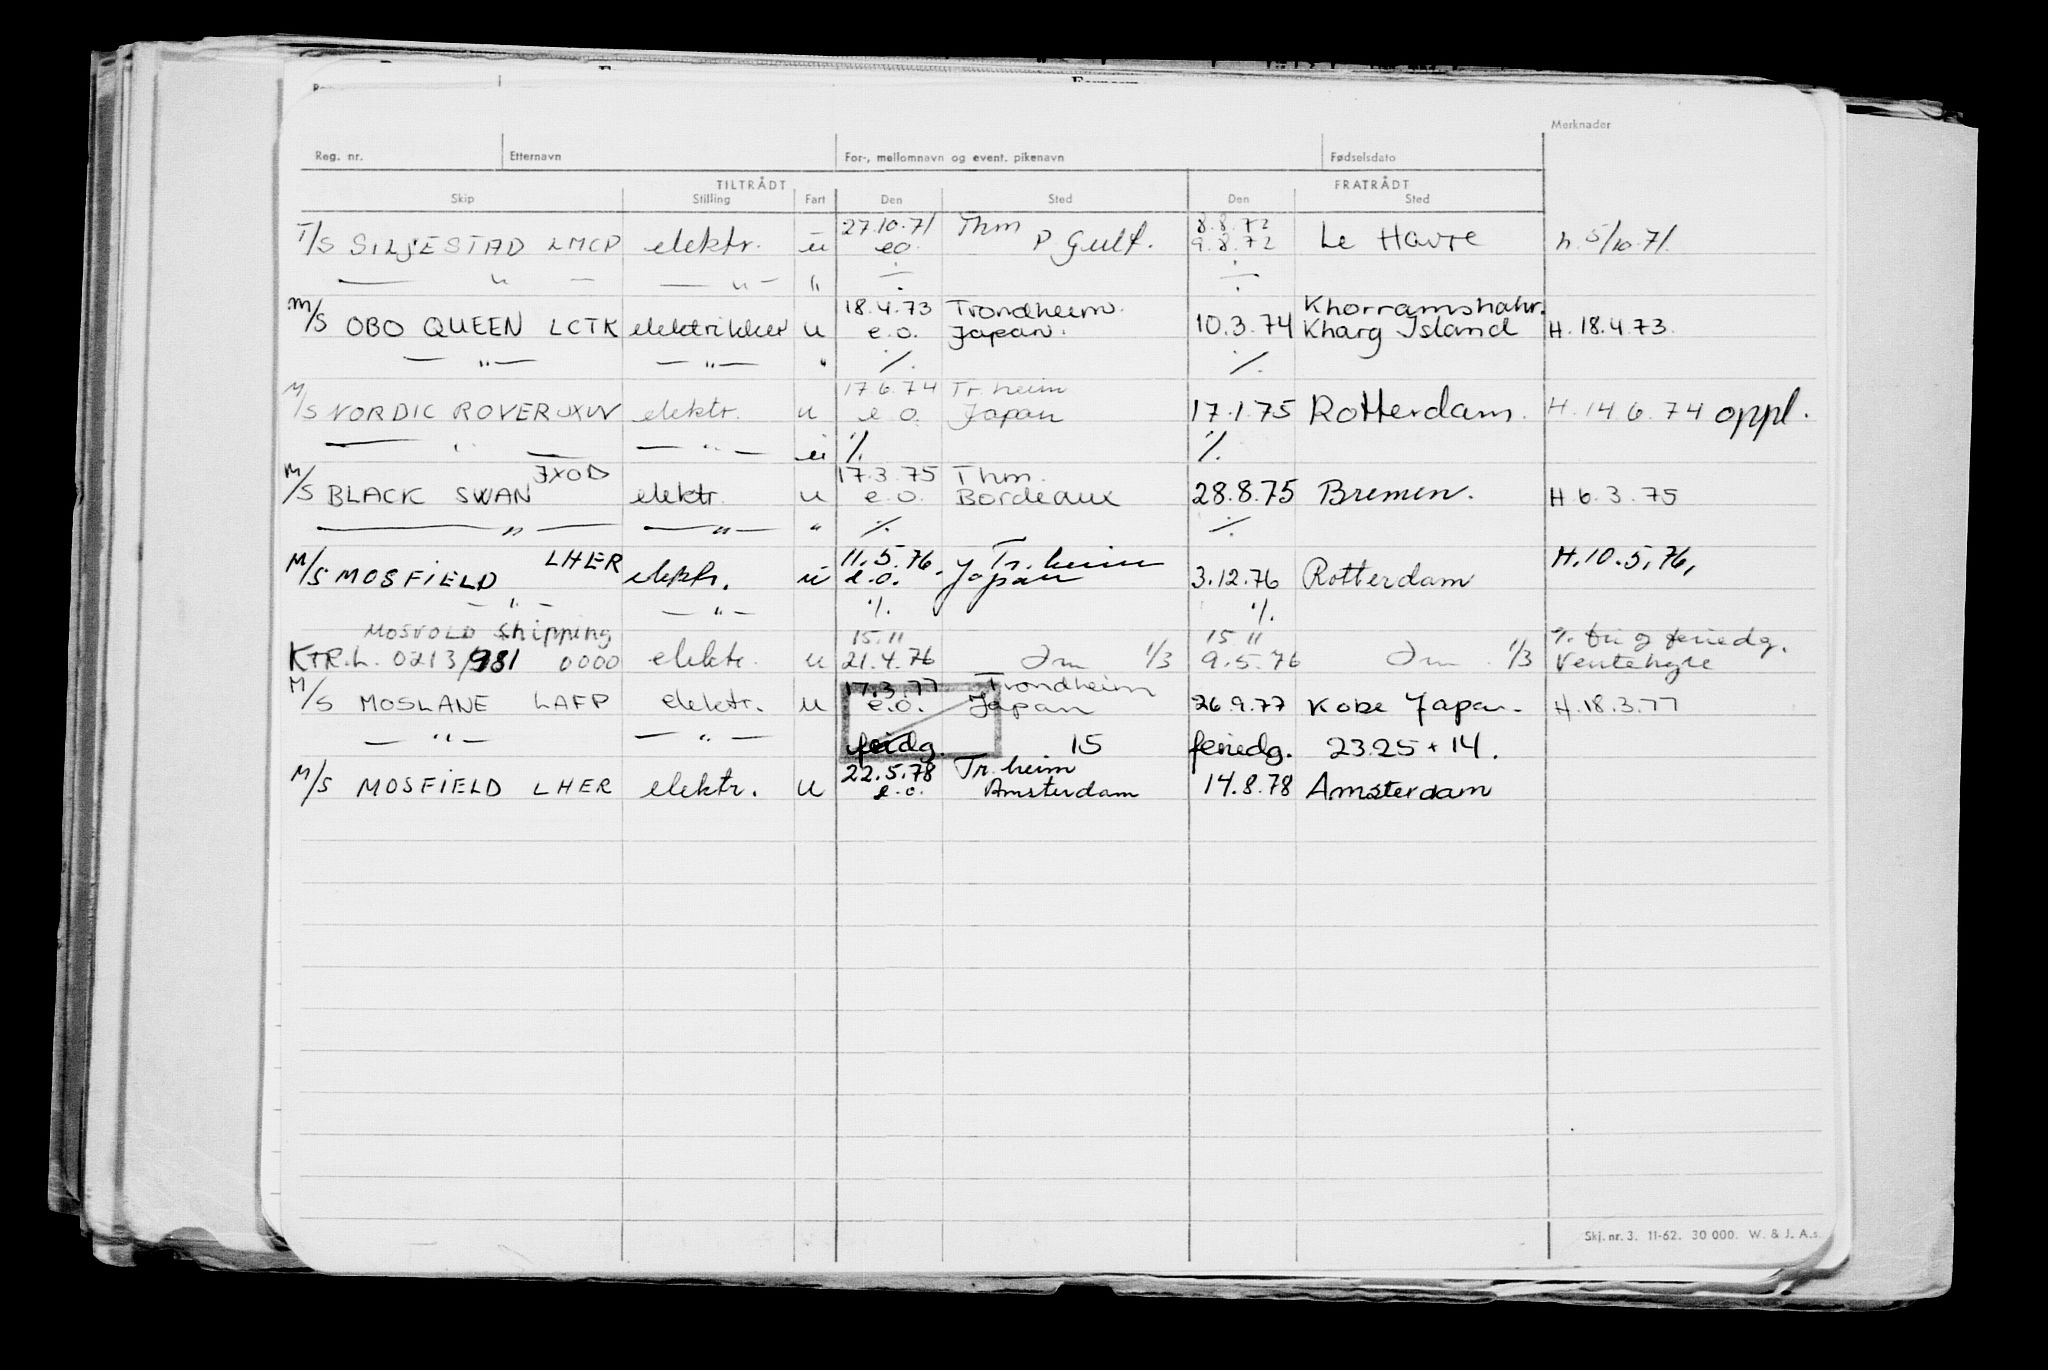 Merknader
Reg. nr. Etternavn For-, mellomnavn og event. pikenavn Fødselsdato
TILTRÅDT FRATRÅDT
Skip Stilling Fart Den Sted Den Sted
27.10.71 Thm 8.8.72
T/S SILJESTAD LMCP elektr. u eo P Gulf. 9.8.72 Le Havre h. 5/10.71.
— " — — " — " ÷ ÷
18.4.73 Trondheim. Khorramshahr.
M/S OBO QUEEN LCTK elektrikker u e.o. Japan. 10.3.74 Kharg Island H. 18.4.73.
— " — — " — " ·/. ·/.
17.6.74 Tr.heim
M/S NORDIC ROVER JXUV elektr. u e.o. Japan 17.1.75 Rotterdam. H. 14.6.74 oppl.
— " — — " — u ·/. ·/.
JXOD 17.3.75 Thm.
M/S BLACK SWAN elektr. u e.o. Bordeaux 28.8.75 Bremen. H. 6.3.75
— " — — " — " ·/. ·/.
LHER 11.5.76. Tr.heim H.10.5.76,
M/S MOSFIELD elektr. u e.o. Japan 3.12.76 Rotterdam
— " — — " — ·/. ·/.
MOSVOLD Shipping 15.11 15.11 ·/. fri og feriedg.
KTR.L. 0213/981 0000 elektr. u 21.4.76 1/3 9.5.76 1/3 Ventehyre
17.3.77 Trondheim
M/S MOSLANE LAFP elektr. u e.o. Japan 26.9.77 Kobe Japan. H.18.3.77
— " — — " — 15 feriedg. 23.25 + 14.
22.5.78 Tr.heim
M/S MOSFIELD LHER elektr. u e.o. Amsterdam 14.8.78 Amsterdam
Skj. nr. 3. 11-62. 30 000. W. & J. A.s.